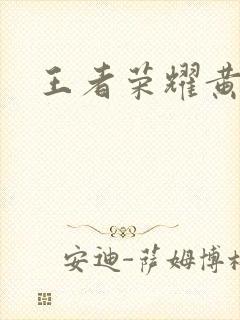 王者荣耀黄
安迪-萨姆博